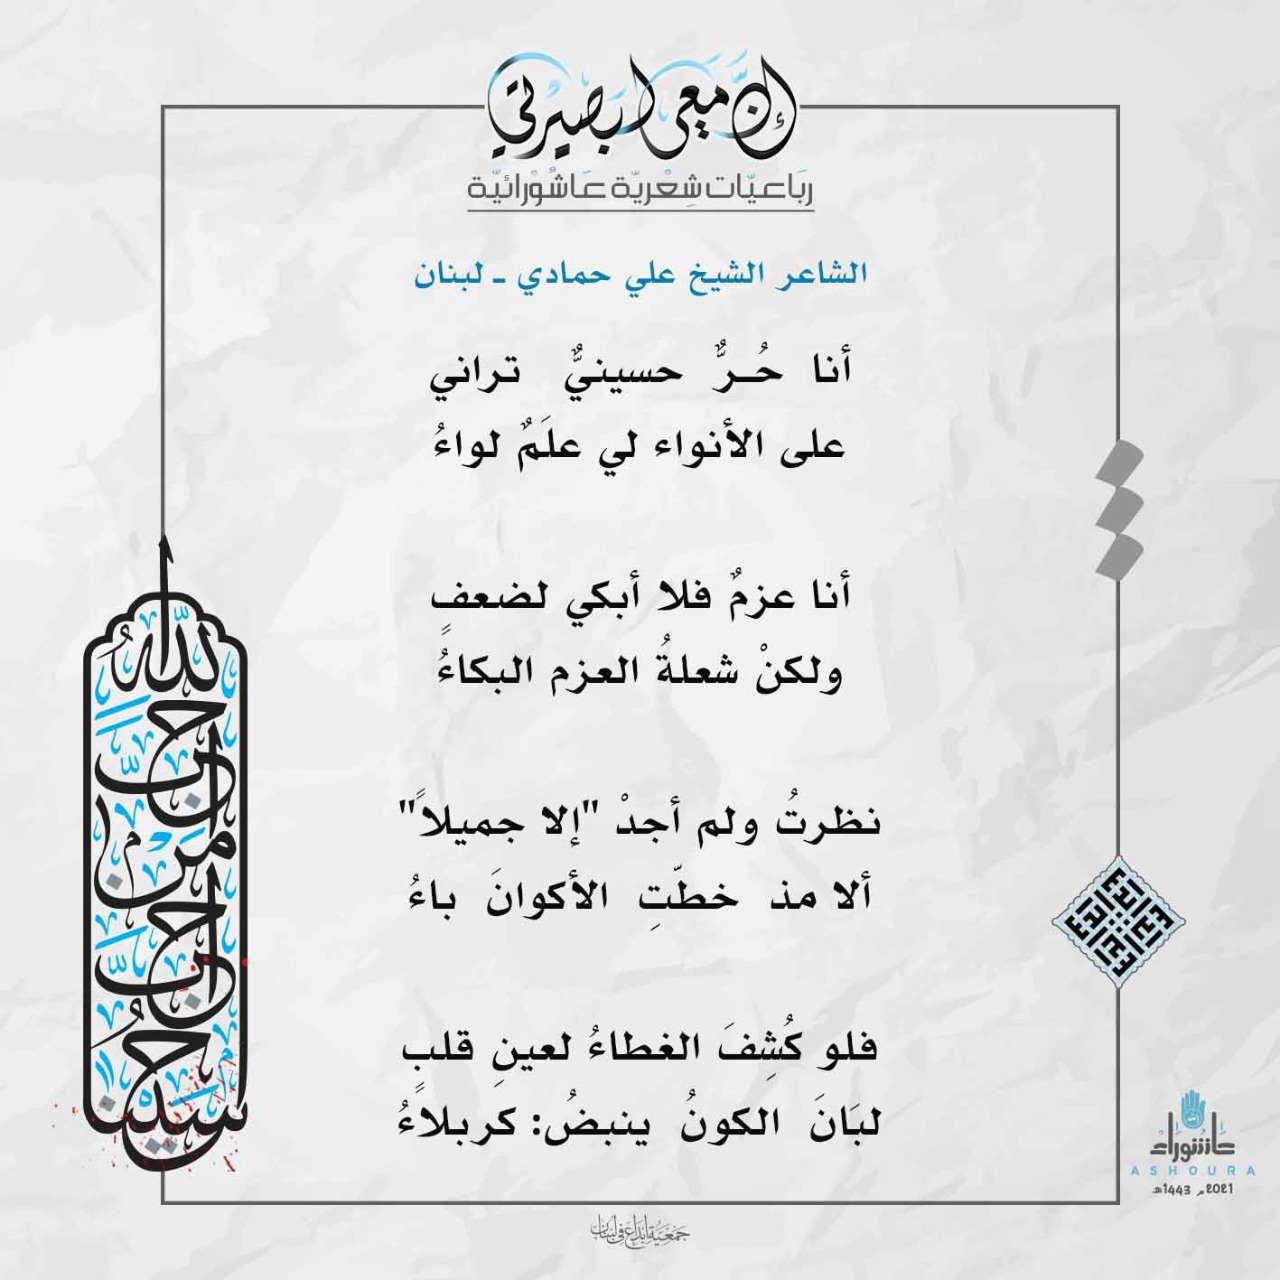 إنّ معي لبصيرتي
رباعيّات شِعْريّة عَاشُوْرائيّة
الشاعر الشيخ علي حمادي ـ لبنان
أنا حُـرٌّ حسينيٌّ تراني
على الأنواء لي علَمٌ لواءُ
أنا عزمٌ فلا أبكي لضعفٍ
ولكنْ شعلةُ العزم البكاءُ
نظرتُ ولم أجدْ "إلا جميلاً"
ألا مذ خطّتِ الأكوانَ باءُ
فلو كُشِفَ الغطاءُ لعينِ قلبٍ
لبَانَ الكونُ ينبضُ: كربلاءُ
أحب الله من أحب حسينا
عاشوراء
ASHOURA
2021م 1443هـ
جمعية إبداع في لبنان